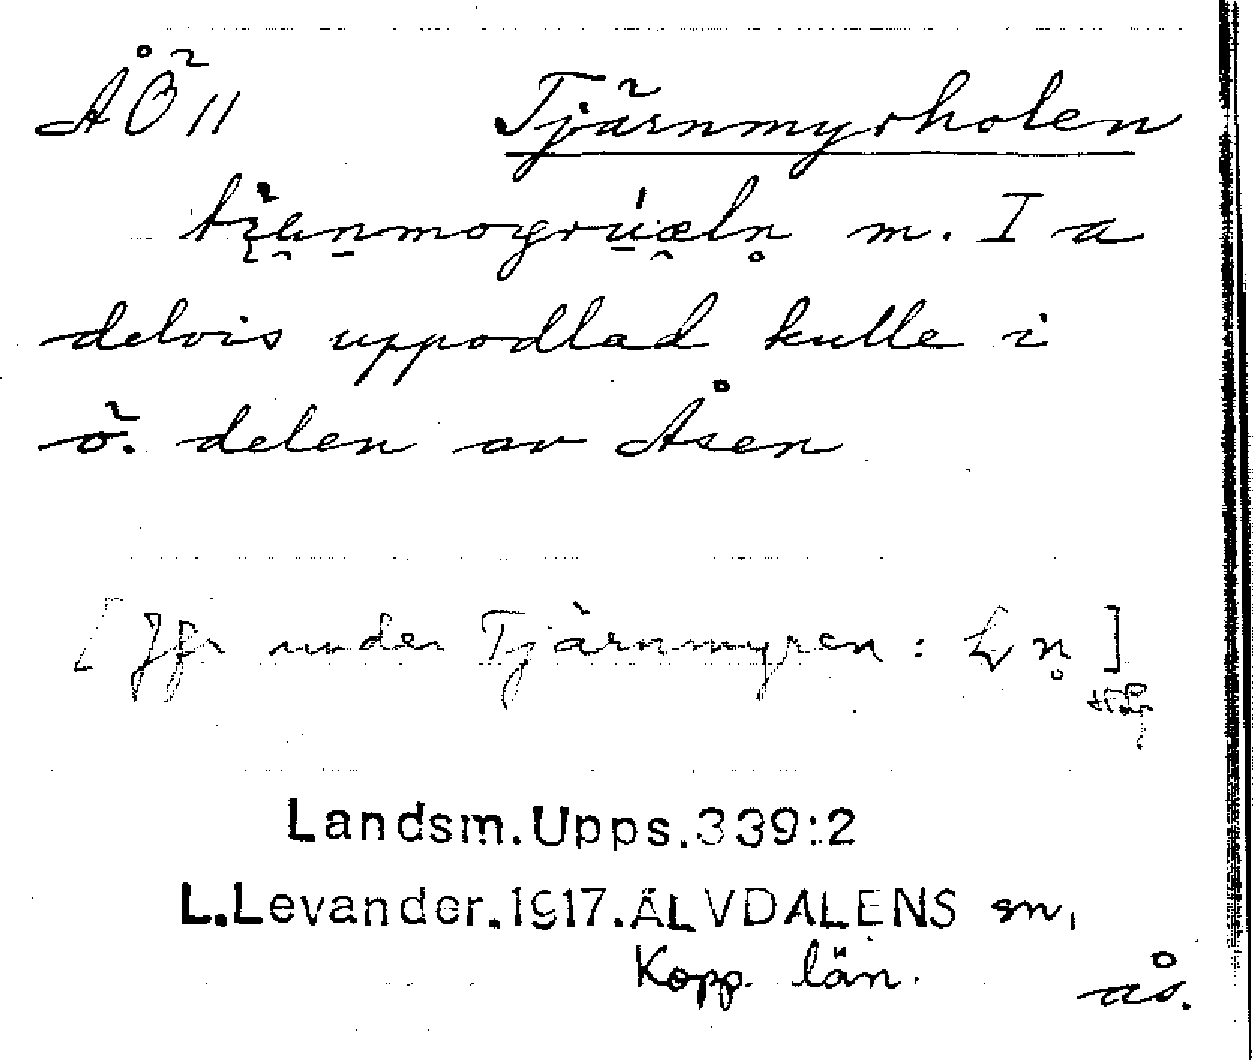 ÅÖ 11 Tjärnmyrholen
m. I a
delvis uppodlad kulle i
ö. delen av Åsen
[Jfr under Tjärnmyren: ]
Landsm.Upps.339:2
L.Levander.1917.ÄLVDALENS sn,
Kopp. län.
ås.